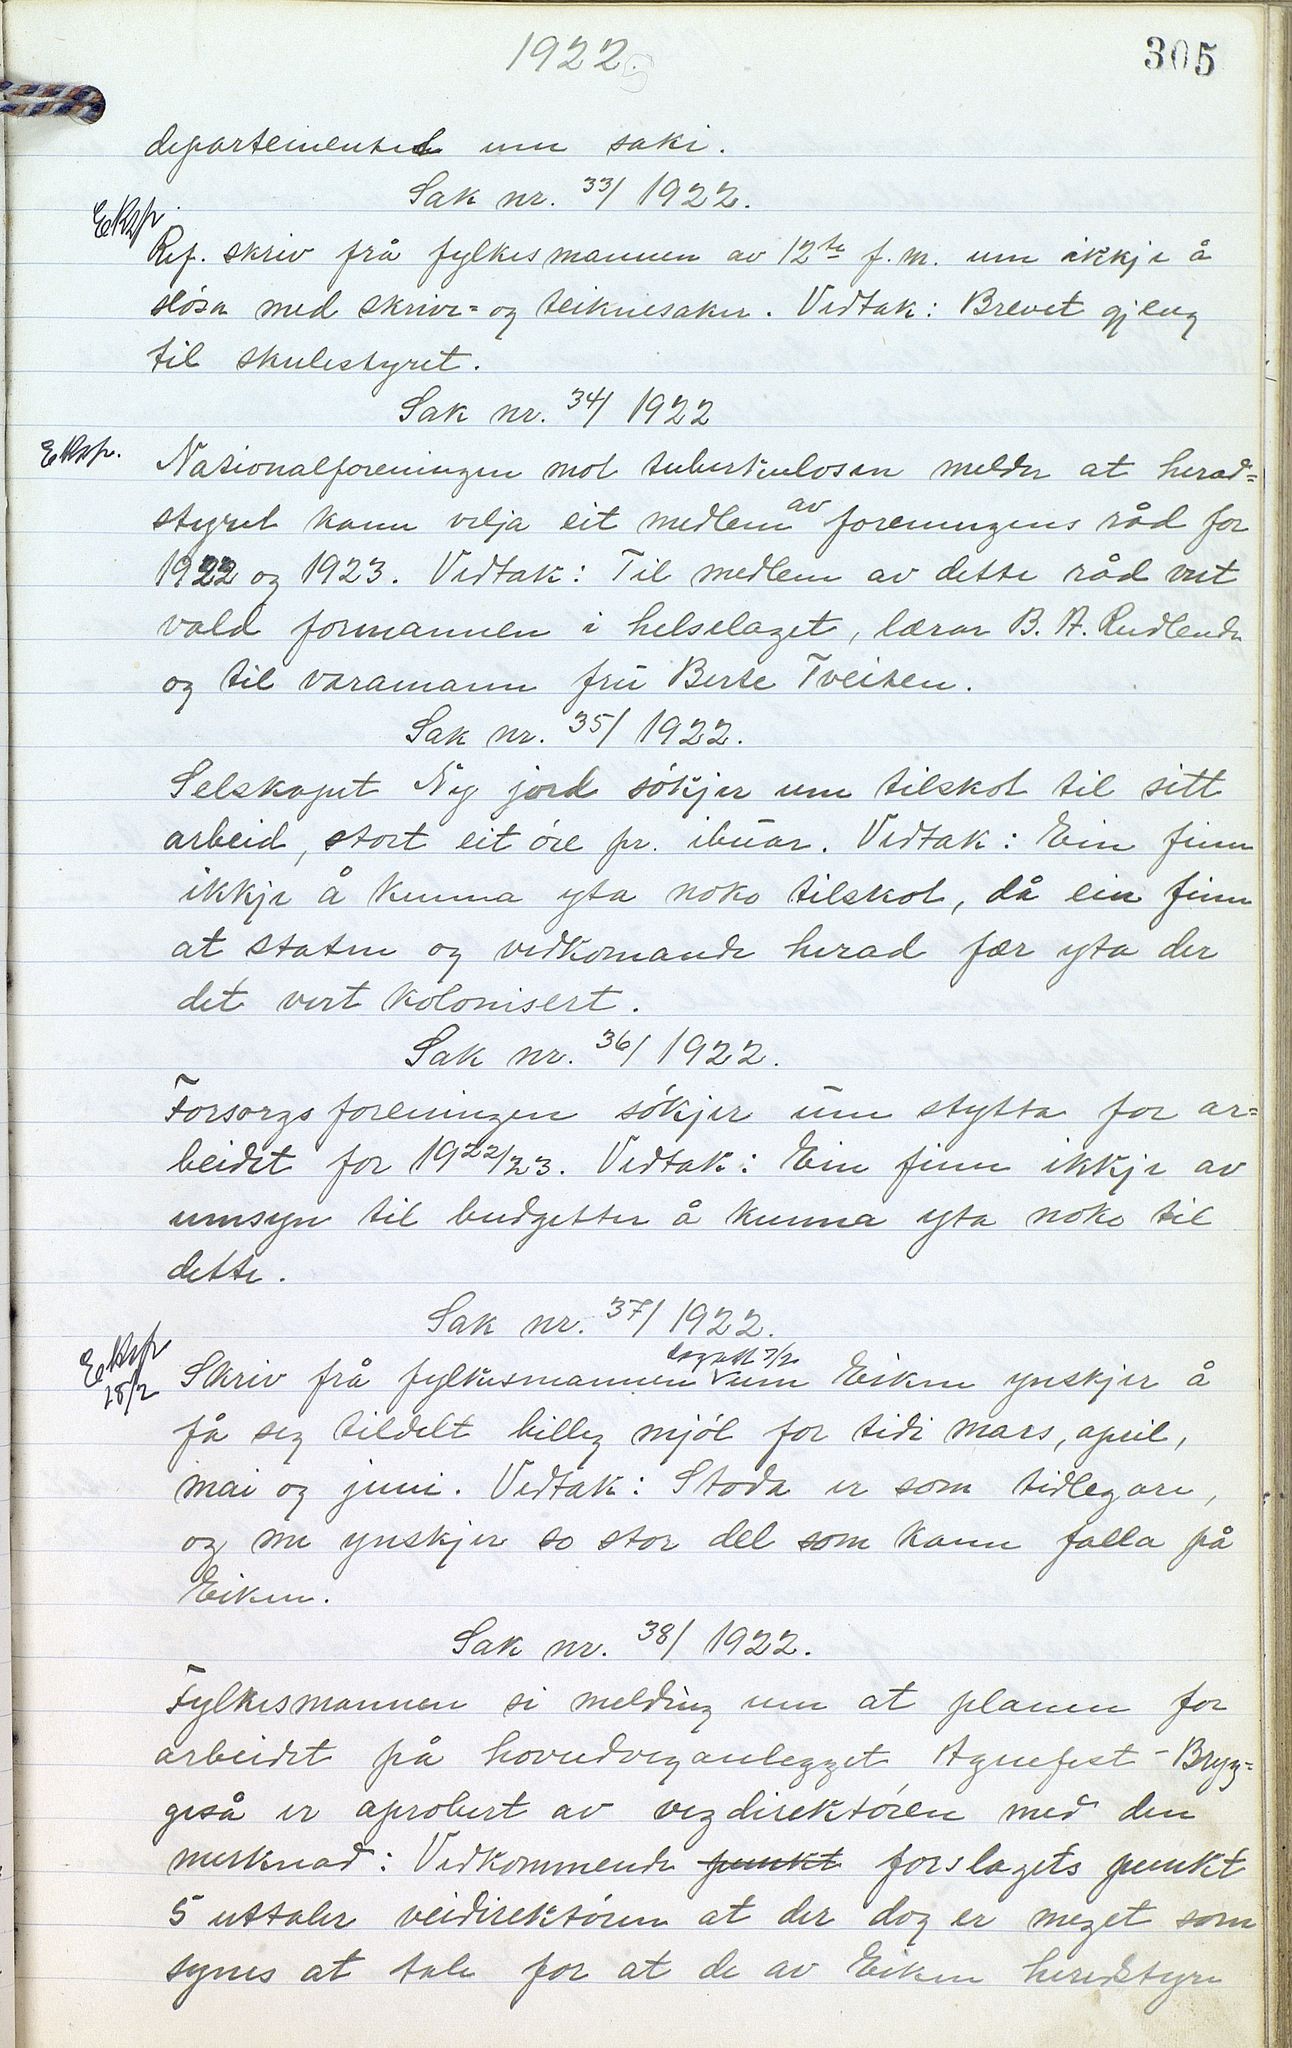 1922.
305
departementet um saki.
Sak nr. 33/1922.
Eksp.
Ref. skriv frå fylkesmannen av 12te f.m. um ikkje å
sløsa med skrive= og teiknesaker. Vedtak: Brevet gjeng
til skulestyret.
Sak nr. 34/1922
Eksp.
Nationalforeningen mot tuberkulosen melder at herad=
styret kann velja eit medlem av foreningens råd for
1922 og 1923. Vedtak: Til medlem av dette råd vert
vald formannen i helselaget, lærar B. A. Rudlende
og til varamann fru Berte Tveiten.
Sak nr. 35/1922.
Selskapet Ny jord søkjer um tilskot til sitt
arbeid, stort eit øre pr. ibuar. Vedtak: Ein finn
ikkje å kunna yta noko tilskot, då ein finn
at staten og vedkomande herad fær yta der
det vert kolonisert.
Sak nr. 36/1922.
Forsorgsforeningen søkjer um stytta for ar=
beidet for 1922/23. Vedtak: Ein finn ikkje av
umsyn til budgetter å kunna yta noko til
dette.
Sak nr. 37/1922.
Eksp
18/2
Skriv frå fylkesmannen dagsett 7/2 um Eiken ynskjer å
få seg tildelt billeg mjøl for tidi mars, april,
mai og juni. Vedtak: Stoda er som tidlegare,
og me ynskjer so stor del som kann falla på
Eiken.
Sak nr. 38/1922.
Fylkesmannen si melding um at planen for
arbeidet på hovudveganlegget Agnefest - Bryg=
geså er aprobert av vegdirektøren med den
merknad: Vedkommende punkt forslagets punkt
5 uttaler veidirektøren at der dog er meget som
synes at tale for at de av Eiken heredstyre